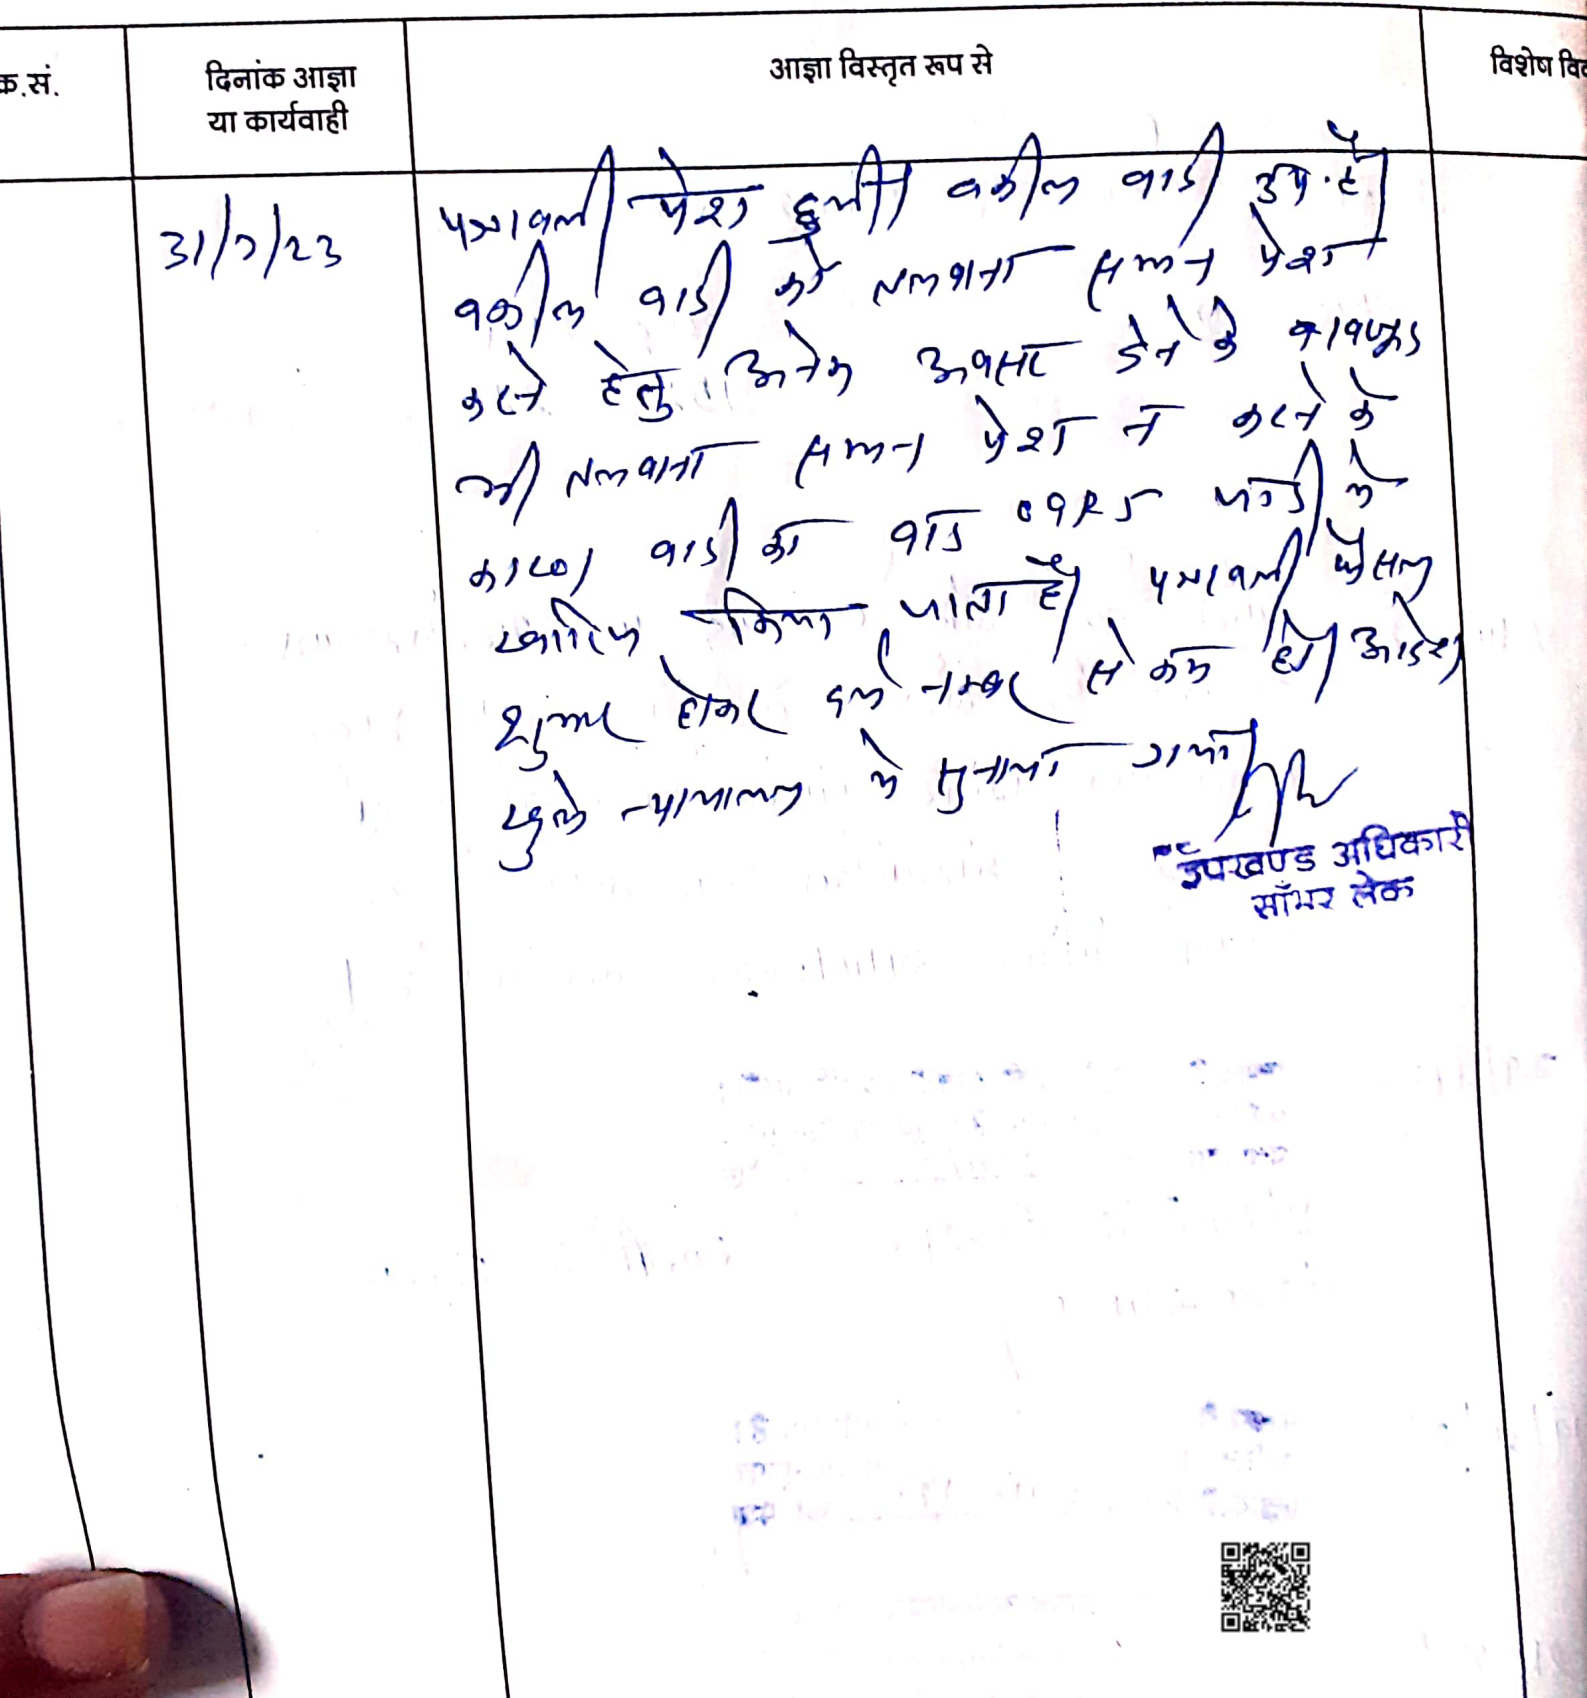 क.सं.
दिनांक आज्ञा
या कार्यवाही
आज्ञा विस्तृत रूप से
विशेष वि
31/7/23
पत्रावली पेश हुयी। वकील वादी उप. है।
वकील वादी को तलवाना सम्मन पेश
करने हेतु अनेक अवसर देने के बावजूद
भी तलवाना सम्मन पेश न करने के
कारण वादी का वाद अदम पैरवी मे
खारिज किया जाता है। पत्रावली फैसल
शुमार होकर दर्ज नम्बर से कम हो। आदेश
खुले न्यायालय मे सुनाया गया।
उपखण्ड अधिकारी
साँभर लेक